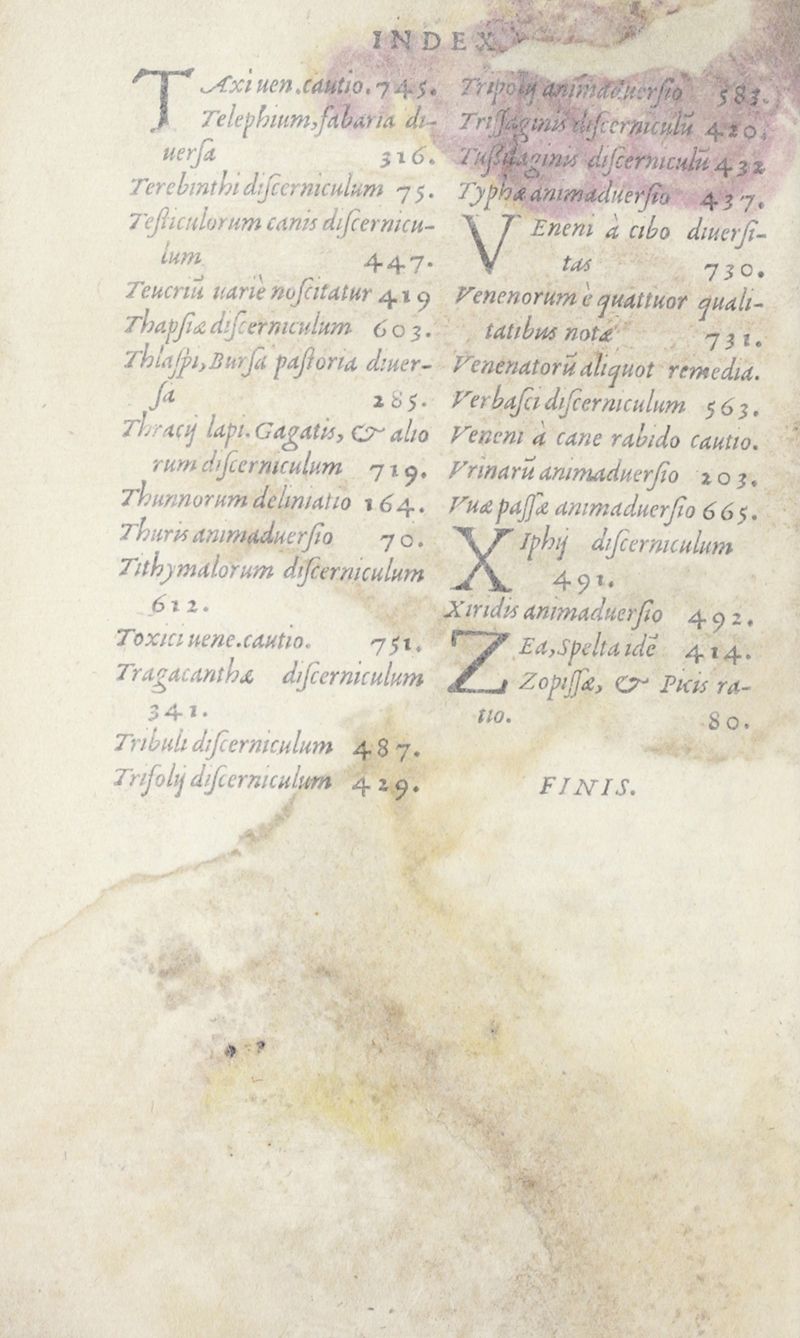 INDEX.
TAxi uen.cautio. 745.
Telephium, fabaria di-
uersa 316.
Terebinthi discerniculum 75.
Testiculorum canis discernicu-
lum 447.
Teucriū uariè noscitatur 419
Thapsiæ discerniculum 603.
Thlaspi, Bursa pastoria diuer-
sa 285.
Thracij lapi. Gagatis, & alio
rum discerniculum 719.
Thunnorum deliniatio 164.
Thuris animaduersio 70.
Tithymalorum discerniculum
612.
Toxici uene.cautio. 751.
Tragacanthæ discerniculum
341.
Tribuli discerniculum 487.
Trifolij discerniculum 429.
Tripolij animaduersio 583.
Trissaginis discerniculū 420.
Tussilaginis discerniculū 432
Typhæ animaduersio 437.
VEneni à cibo diuersi-
tas 730.
Venenorum è quattuor quali-
tatibus notæ 731.
Venenatorū aliquot remedia.
Verbasci discerniculum 563.
Veneni à cane rabido cautio.
Vrinarū animaduersio 203.
Vuæ passæ animaduersio 665.
XIphij discerniculum
491.
Xiridis animaduersio 492.
ZEa, Spelta idē 414.
Zopissæ, & Picis ra-
tio. 80.
FINIS.